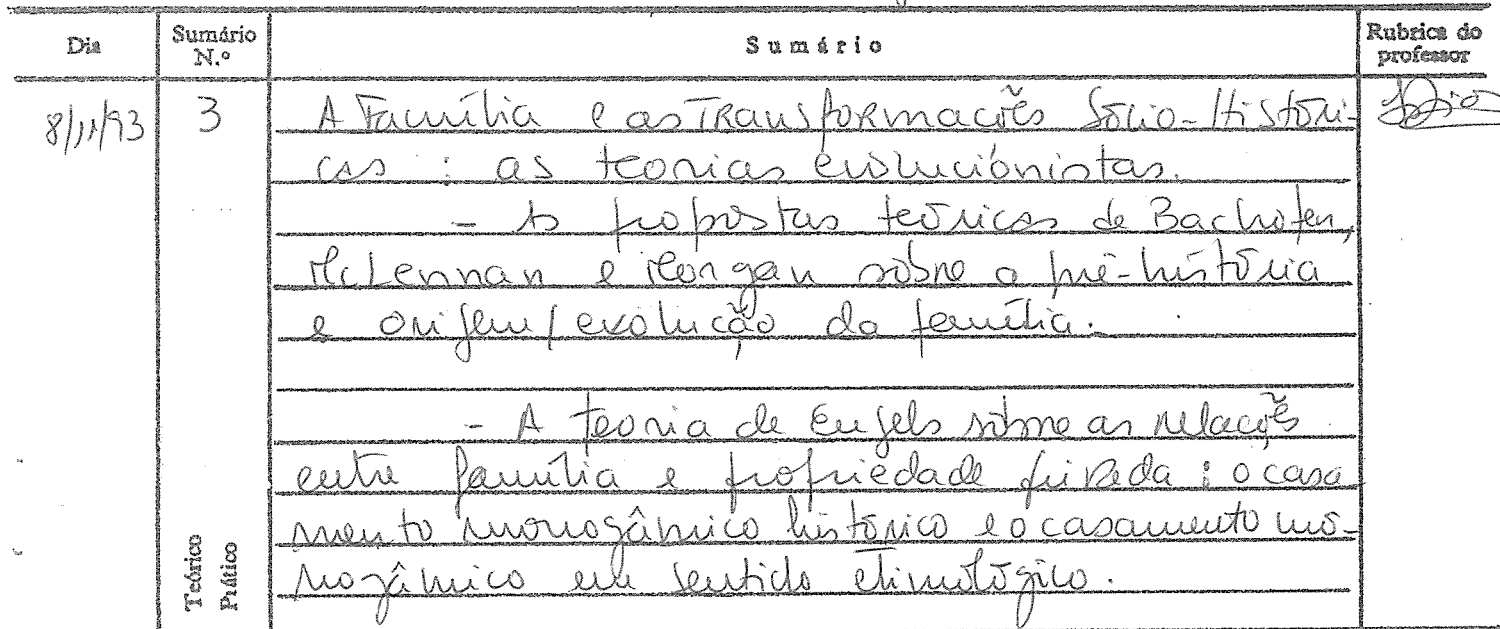 Dia Sumário N.º Sumário Rubrica do professor
8/11/93 3 A Família e as Transformações Sócio-Históri-
cas : as teorias evolucionistas.
- As propostas teóricas de Bachofen,
McLennan e Morgan sobre a pré-história
e origem/evolução da família.
- A teoria de Engels sobre as relações
entre família e propriedade privada : o casa
mento monogâmico histórico e o casamento mo-
nogâmico em sentido etimológico.
Teórico
Prático